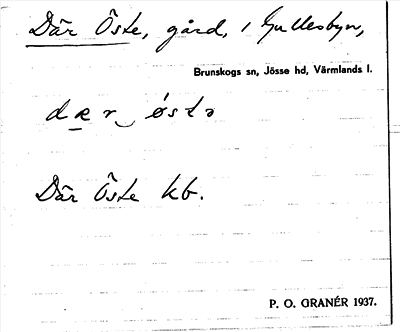 Där Öste, gård, i Gullesbyn,
Brunskogs sn, Jösse hd, Värmlands l.
dær‿östə
Där Öste kb.
P. O. GRANÉR 1937.